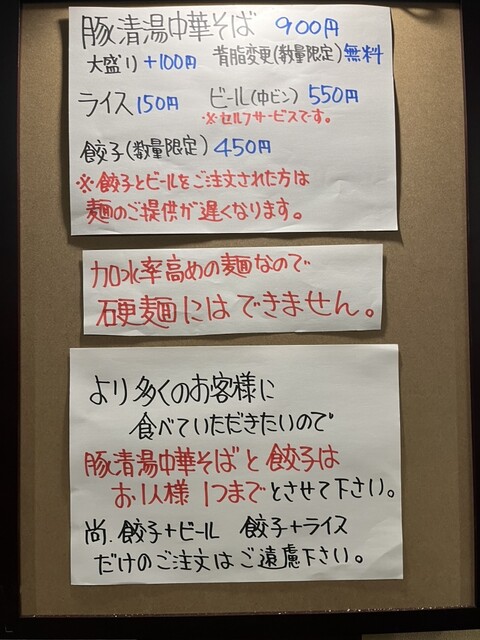 豚清湯中華そば 900円
大盛り+100円 背脂変更(数量限定)無料
ライス150円 ビール(中ビン) 550円
※セルフサービスです。
餃子(数量限定) 450円
※餃子とビールをご注文された方は
麺のご提供が遅くなります。
加水率高めの麺なので
硬麺にはできません。
より多くのお客様に
食べていただきたいので
豚清湯中華そばと餃子は
お1人様 1つまでとさせて下さい。
尚、餃子+ビール 餃子+ライス
だけのご注文はご遠慮下さい。